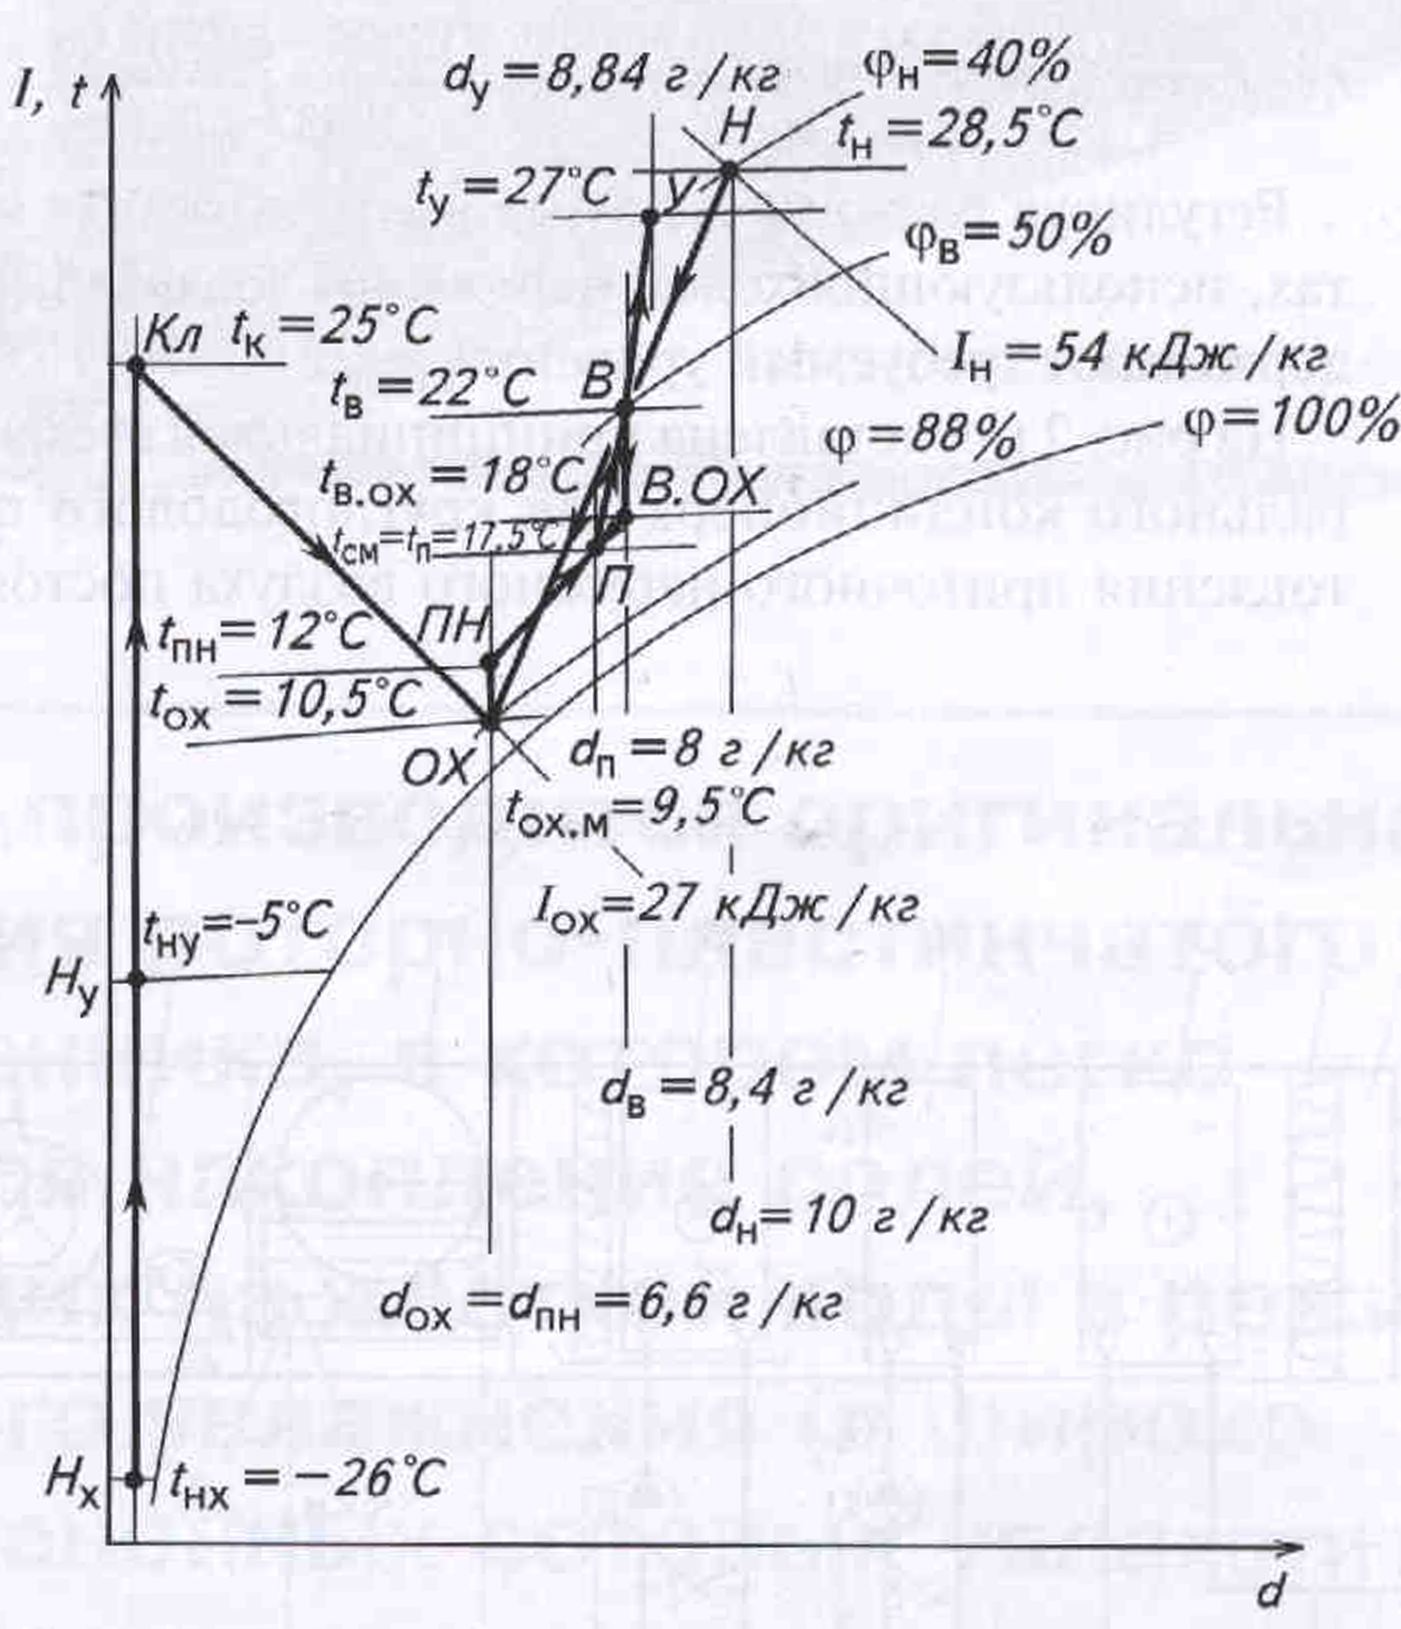 I, t
dу = 8,84 г/кг
φн = 40%
Н
tн = 28,5°C
tу = 27°C
У
φв = 50%
Кл tк = 25°C
Iн = 54 кДж/кг
tв = 22°C
В
φ = 88%
φ = 100%
tв.ох = 18°C
В.ОХ
tсм = tп = 17,5°C
П
tпн = 12°C
ПН
tох = 10,5°C
ОХ
dп = 8 г/кг
tох.м = 9,5°C
Iох = 27 кДж/кг
tну = -5°C
Ну
dв = 8,4 г/кг
dн = 10 г/кг
dох = dпн = 6,6 г/кг
Нх
tнх = -26°C
d